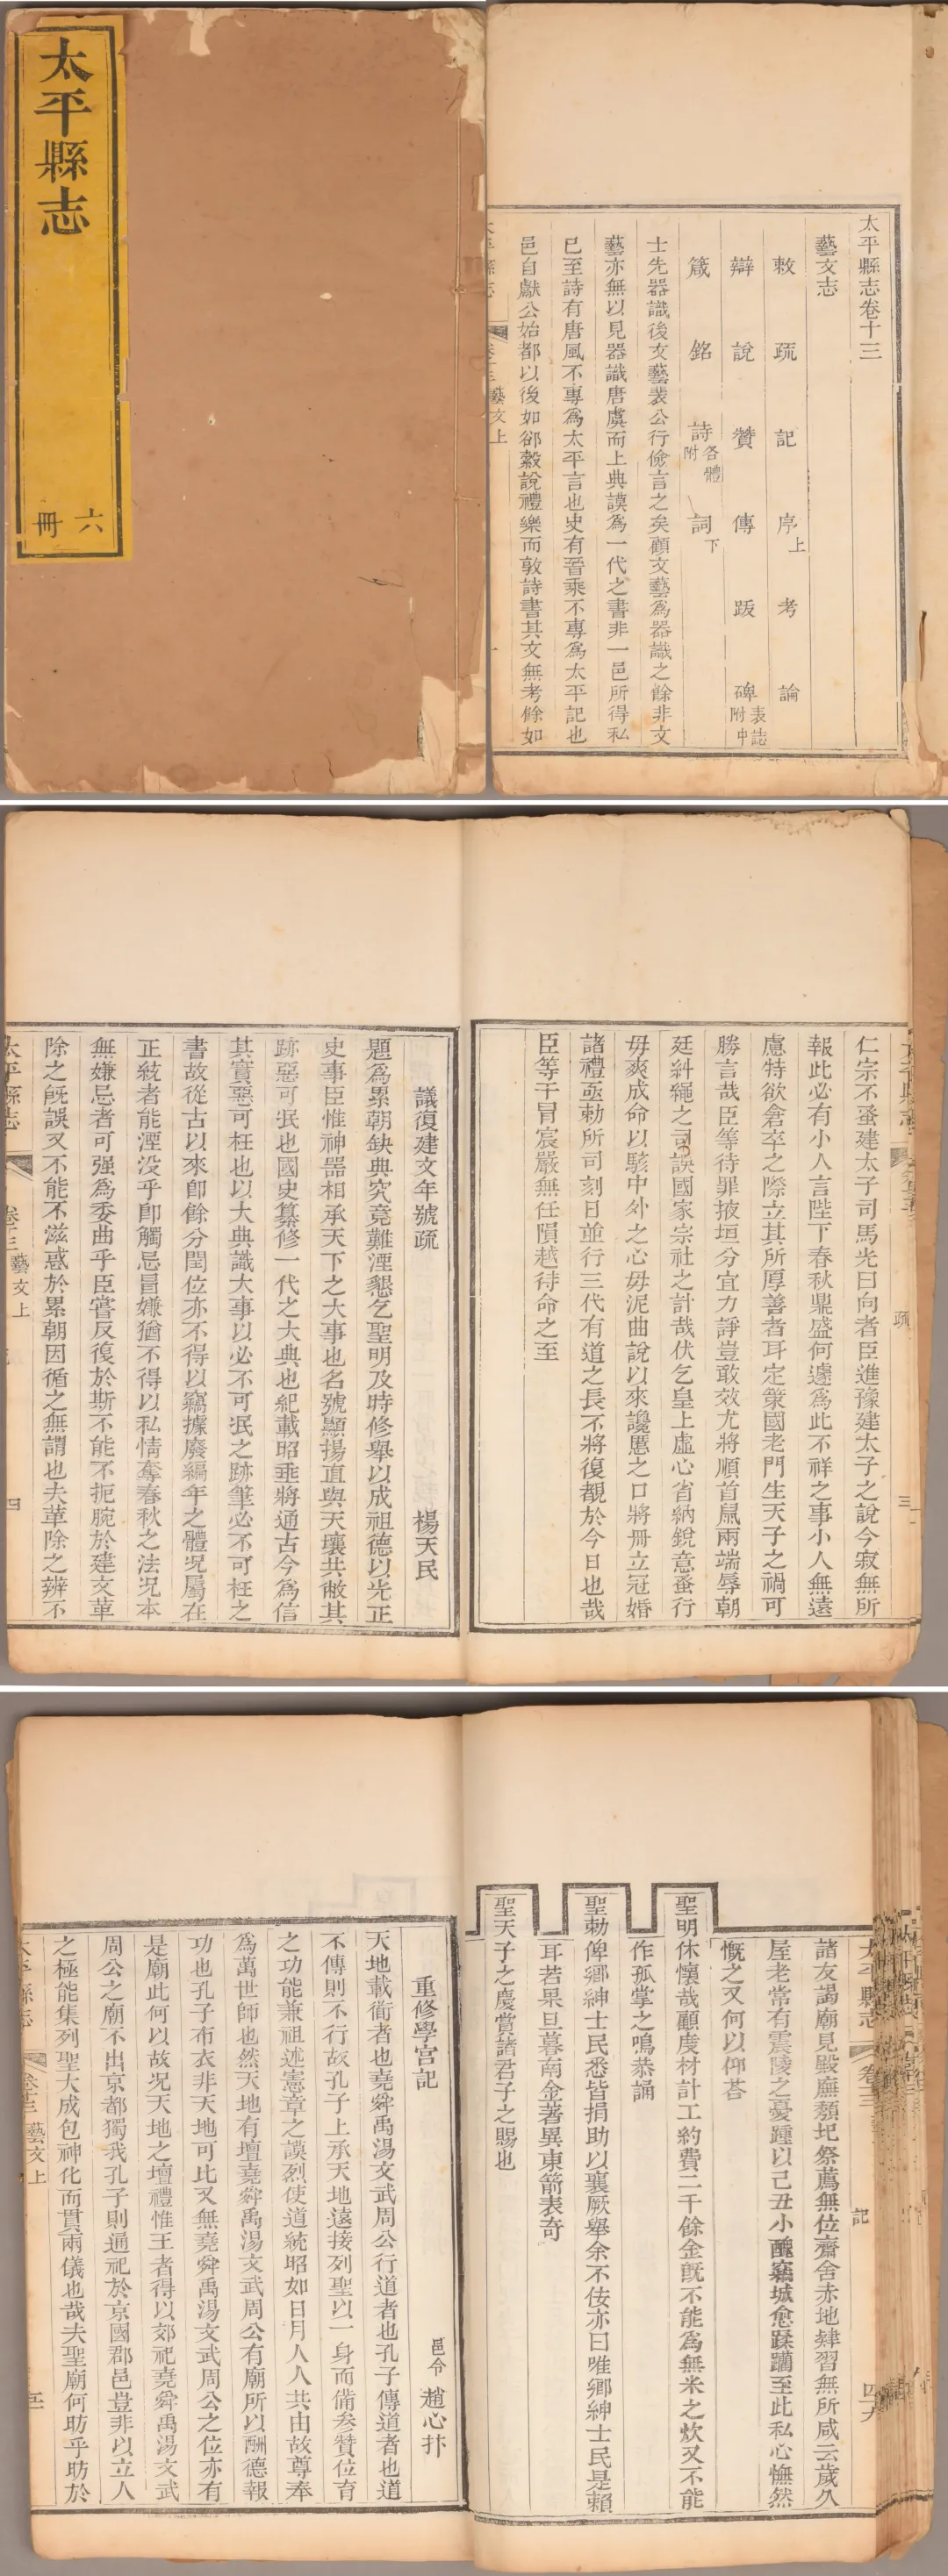 太平縣志
六冊
太平縣志卷十三
藝文志
敕 疏 記 序上 考 論
辯 說 贊 傳 跋 碑表誌附中
箴 銘 詩各體附 詞下
士先器識後文藝裴公行儉言之矣顧文藝為器識之餘非文
藝亦無以見器識唐虞而上典謨為一代之書非一邑所得私
已至詩有唐風不專為太平言也史有晉乘不專為太平記也
邑自獻公始都以後如郤縠說禮樂而敦詩書其文無考餘如
太平縣志 卷十三 藝文上
仁宗不蚤建太子司馬光曰向者臣進豫建太子之說今寂無所
報此必有小人言陛下春秋鼎盛何遽為此不祥之事小人無遠
慮特欲倉卒之際立其所厚善者耳定策國老門生天子之禍可
勝言哉臣等待罪掖垣分宜力諍豈敢效尤將順首鼠兩端辱朝
廷糾繩之司誤國家宗社之計哉伏乞皇上虛心省納銳意蚤行
毋爽成命以駭中外之心毋泥曲說以來讒慝之口將冊立冠婚
諸禮亟勅所司刻日並行三代有道之長不將復覩於今日也哉
臣等干冒宸嚴無任隕越待命之至
議復建文年號疏 楊天民
題為累朝缺典究竟難湮懇乞聖明及時修舉以成祖德以光正
史事臣惟神器相承天下之大事也名號顯揚直與天壤共敝其
跡惡可泯也國史纂修一代之大典也紀載昭垂將通古今為信
其實惡可枉也以大典識大事以必不可泯之跡筆必不可枉之
書故從古以來卽餘分閏位亦不得以竊據廢編年之體況屬在
正統者能湮沒乎卽觸忌冒嫌猶不得以私情奪春秋之法況本
無嫌忌者可强為委曲乎臣嘗反復於斯不能不扼腕於建文革
除之旣誤又不能不滋惑於累朝因循之無謂也夫革除之辨不
太平縣志 卷十三 藝文上 四
諸友謁廟見殿廡頹圮祭薦無位齋舍赤地肄習無所咸云歲久
屋老常有震陵之憂踵以己丑小醜竊城愈蹂躪至此私心憮然
慨之又何以仰荅
聖明休懷哉顧度材計工約費二千餘金旣不能為無米之炊又不能
作孤掌之鳴恭誦
聖勅俾鄉紳士民悉皆捐助以襄厥舉余不佞亦曰唯鄉紳士民是賴
耳若果旦暮南金著異東箭表奇
聖天子之慶賞諸君子之賜也
重修學宮記 邑令 趙心抃
天地載衜者也堯舜禹湯文武周公行道者也孔子傳道者也道
不傳則不行故孔子上承天地遠接列聖以一身而備叅贊位育
之功能兼祖述憲章之謨烈使道統昭如日月人人共由故尊奉
為萬世師也然天地有壇堯舜禹湯文武周公有廟所以酬德報
功也孔子布衣非天地可比又無堯舜禹湯文武周公之位亦有
是廟此何以故況天地之壇禮惟王者得以郊祀堯舜禹湯文武
周公之廟不出京都獨我孔子則通祀於京國郡邑豈非以立人
之極能集列聖大成包神化而貫兩儀也哉夫聖廟何昉乎昉於
太平縣志 卷十三 藝文上